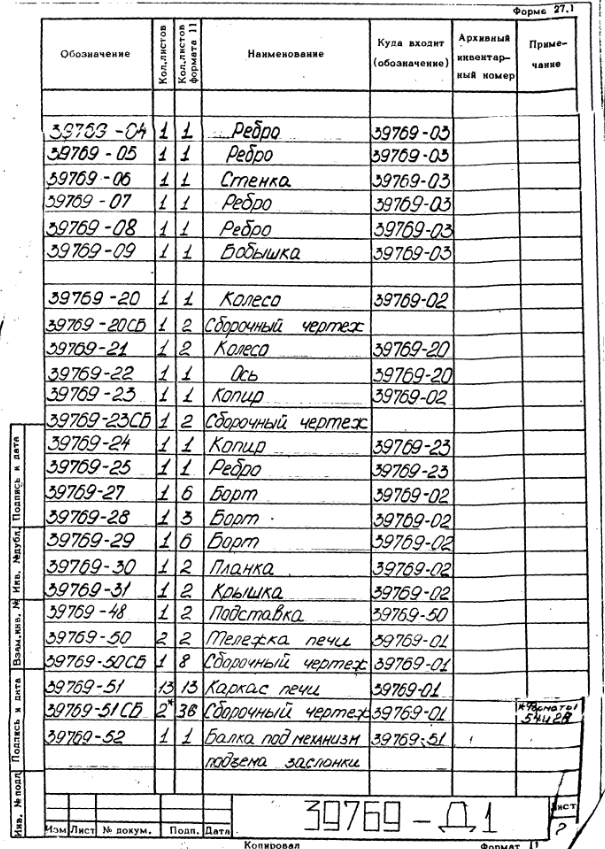 Форма 27.1
Обозначение Кол.листов Кол.листов формата 11 Наименование Куда входит (обозначение) Архивный инвентар-ный номер Приме-чание
39769-04 1 1 Ребро 39769-03
39769-05 1 1 Ребро 39769-03
39769-06 1 1 Стенка 39769-03
39769-07 1 1 Ребро 39769-03
39769-08 1 1 Ребро 39769-03
39769-09 1 1 Бобышка 39769-03
39769-20 1 1 Колесо 39769-02
39769-20СБ 1 2 Сборочный чертеж
39769-21 1 2 Колесо 39769-20
39769-22 1 1 Ось 39769-20
39769-23 1 1 Копир 39769-02
39769-23СБ 1 2 Сборочный чертеж
39769-24 1 1 Копир 39769-23
39769-25 1 1 Ребро 39769-23
39769-27 1 6 Борт 39769-02
39769-28 1 3 Борт 39769-02
39769-29 1 6 Борт 39769-02
39769-30 1 2 Планка 39769-02
39769-31 1 2 Крышка 39769-02
39769-48 1 2 Подставка 39769-50
39769-50 2 2 Тележка печи 39769-01
39769-50СБ 1 8 Сборочный чертеж 39769-01
39769-51 13 13 Каркас печи 39769-01
39769-51СБ 2* 38 Сборочный чертеж 39769-01 *Форматы
39769-52 1 1 Балка под механизм 39769-51
подъема заслонки
Инв. № подл. Подпись и дата Взам.инв. № Инв. №дубл. Подпись и дата
39769-Д1
Лист
Изм Лист № докум. Подп. Дата
Копировал Формат 11